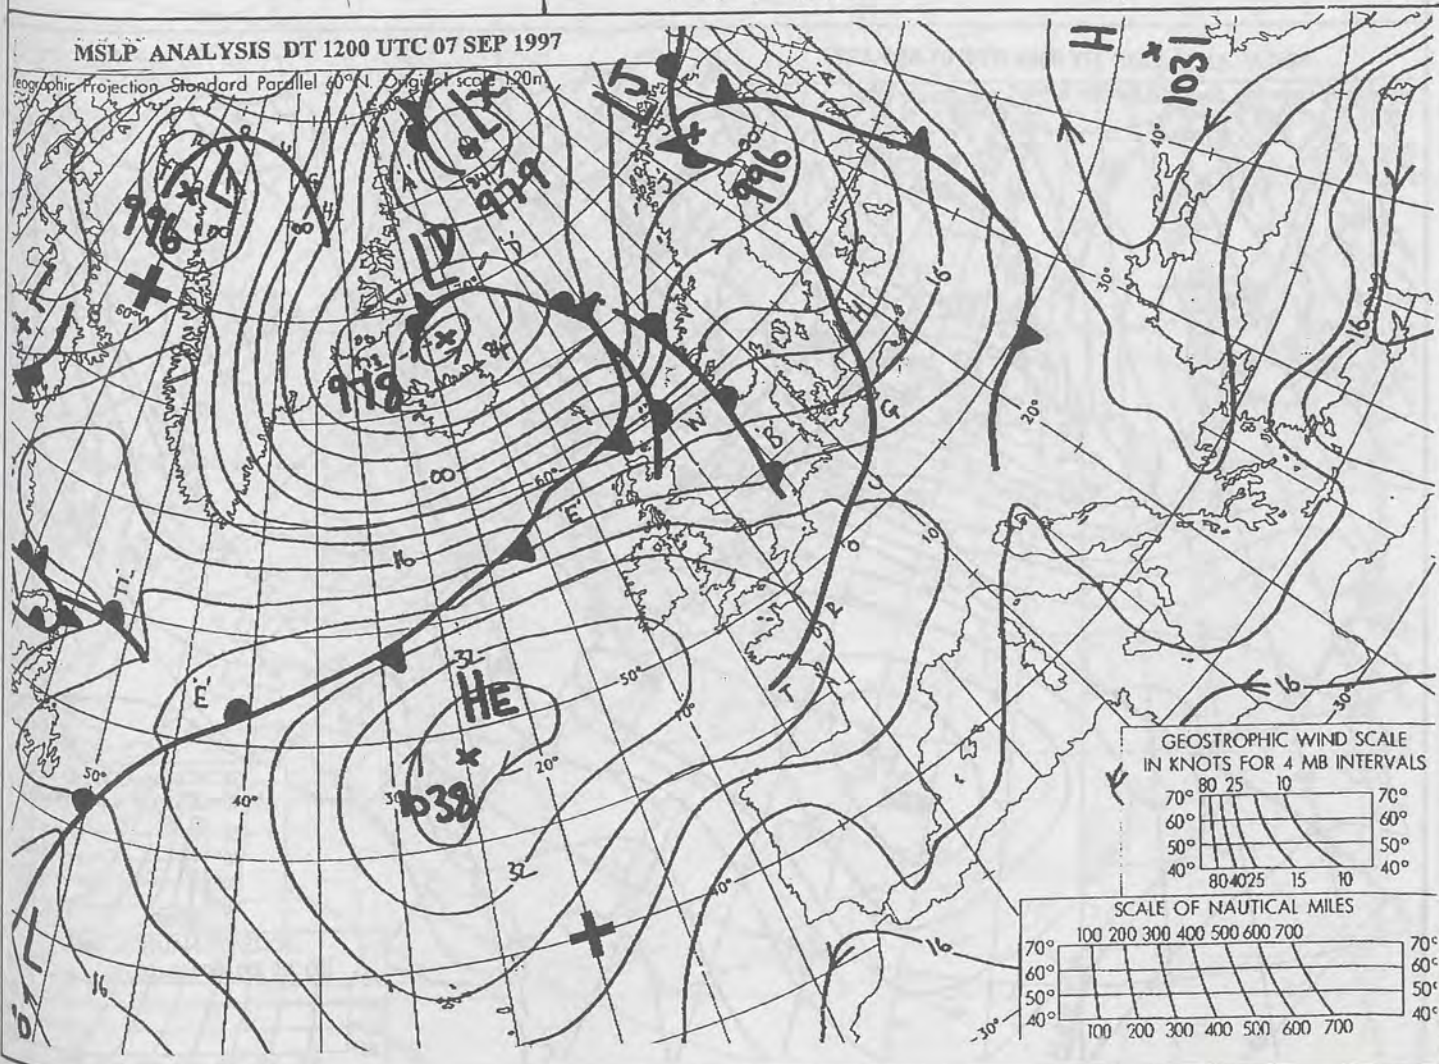 MSLP ANALYSIS DT 1200 UTC 07 SEP 1997
eographic Projection Standard Parallel 60°N. Original scale 1:20m
H
1031
L
996
L
979
L J
996
L D
978
40°
30°
20°
16
16
60°N
00
00
84
16
60°
'A'
'D'
'W'
'B'
'E'
'E'
H
G
U
O
R
T
10
10°
32
HE
1038
50°
20°
30
40°
50°
32
40°
16
L
'D'
16
30°
16
-30°
GEOSTROPHIC WIND SCALE
IN KNOTS FOR 4 MB INTERVALS
80 25 10
70° 70°
60° 60°
50° 50°
40° 40°
80 40 25 15 10
SCALE OF NAUTICAL MILES
100 200 300 400 500 600 700
70° 70°
60° 60°
50° 50°
40° 40°
100 200 300 400 500 600 700